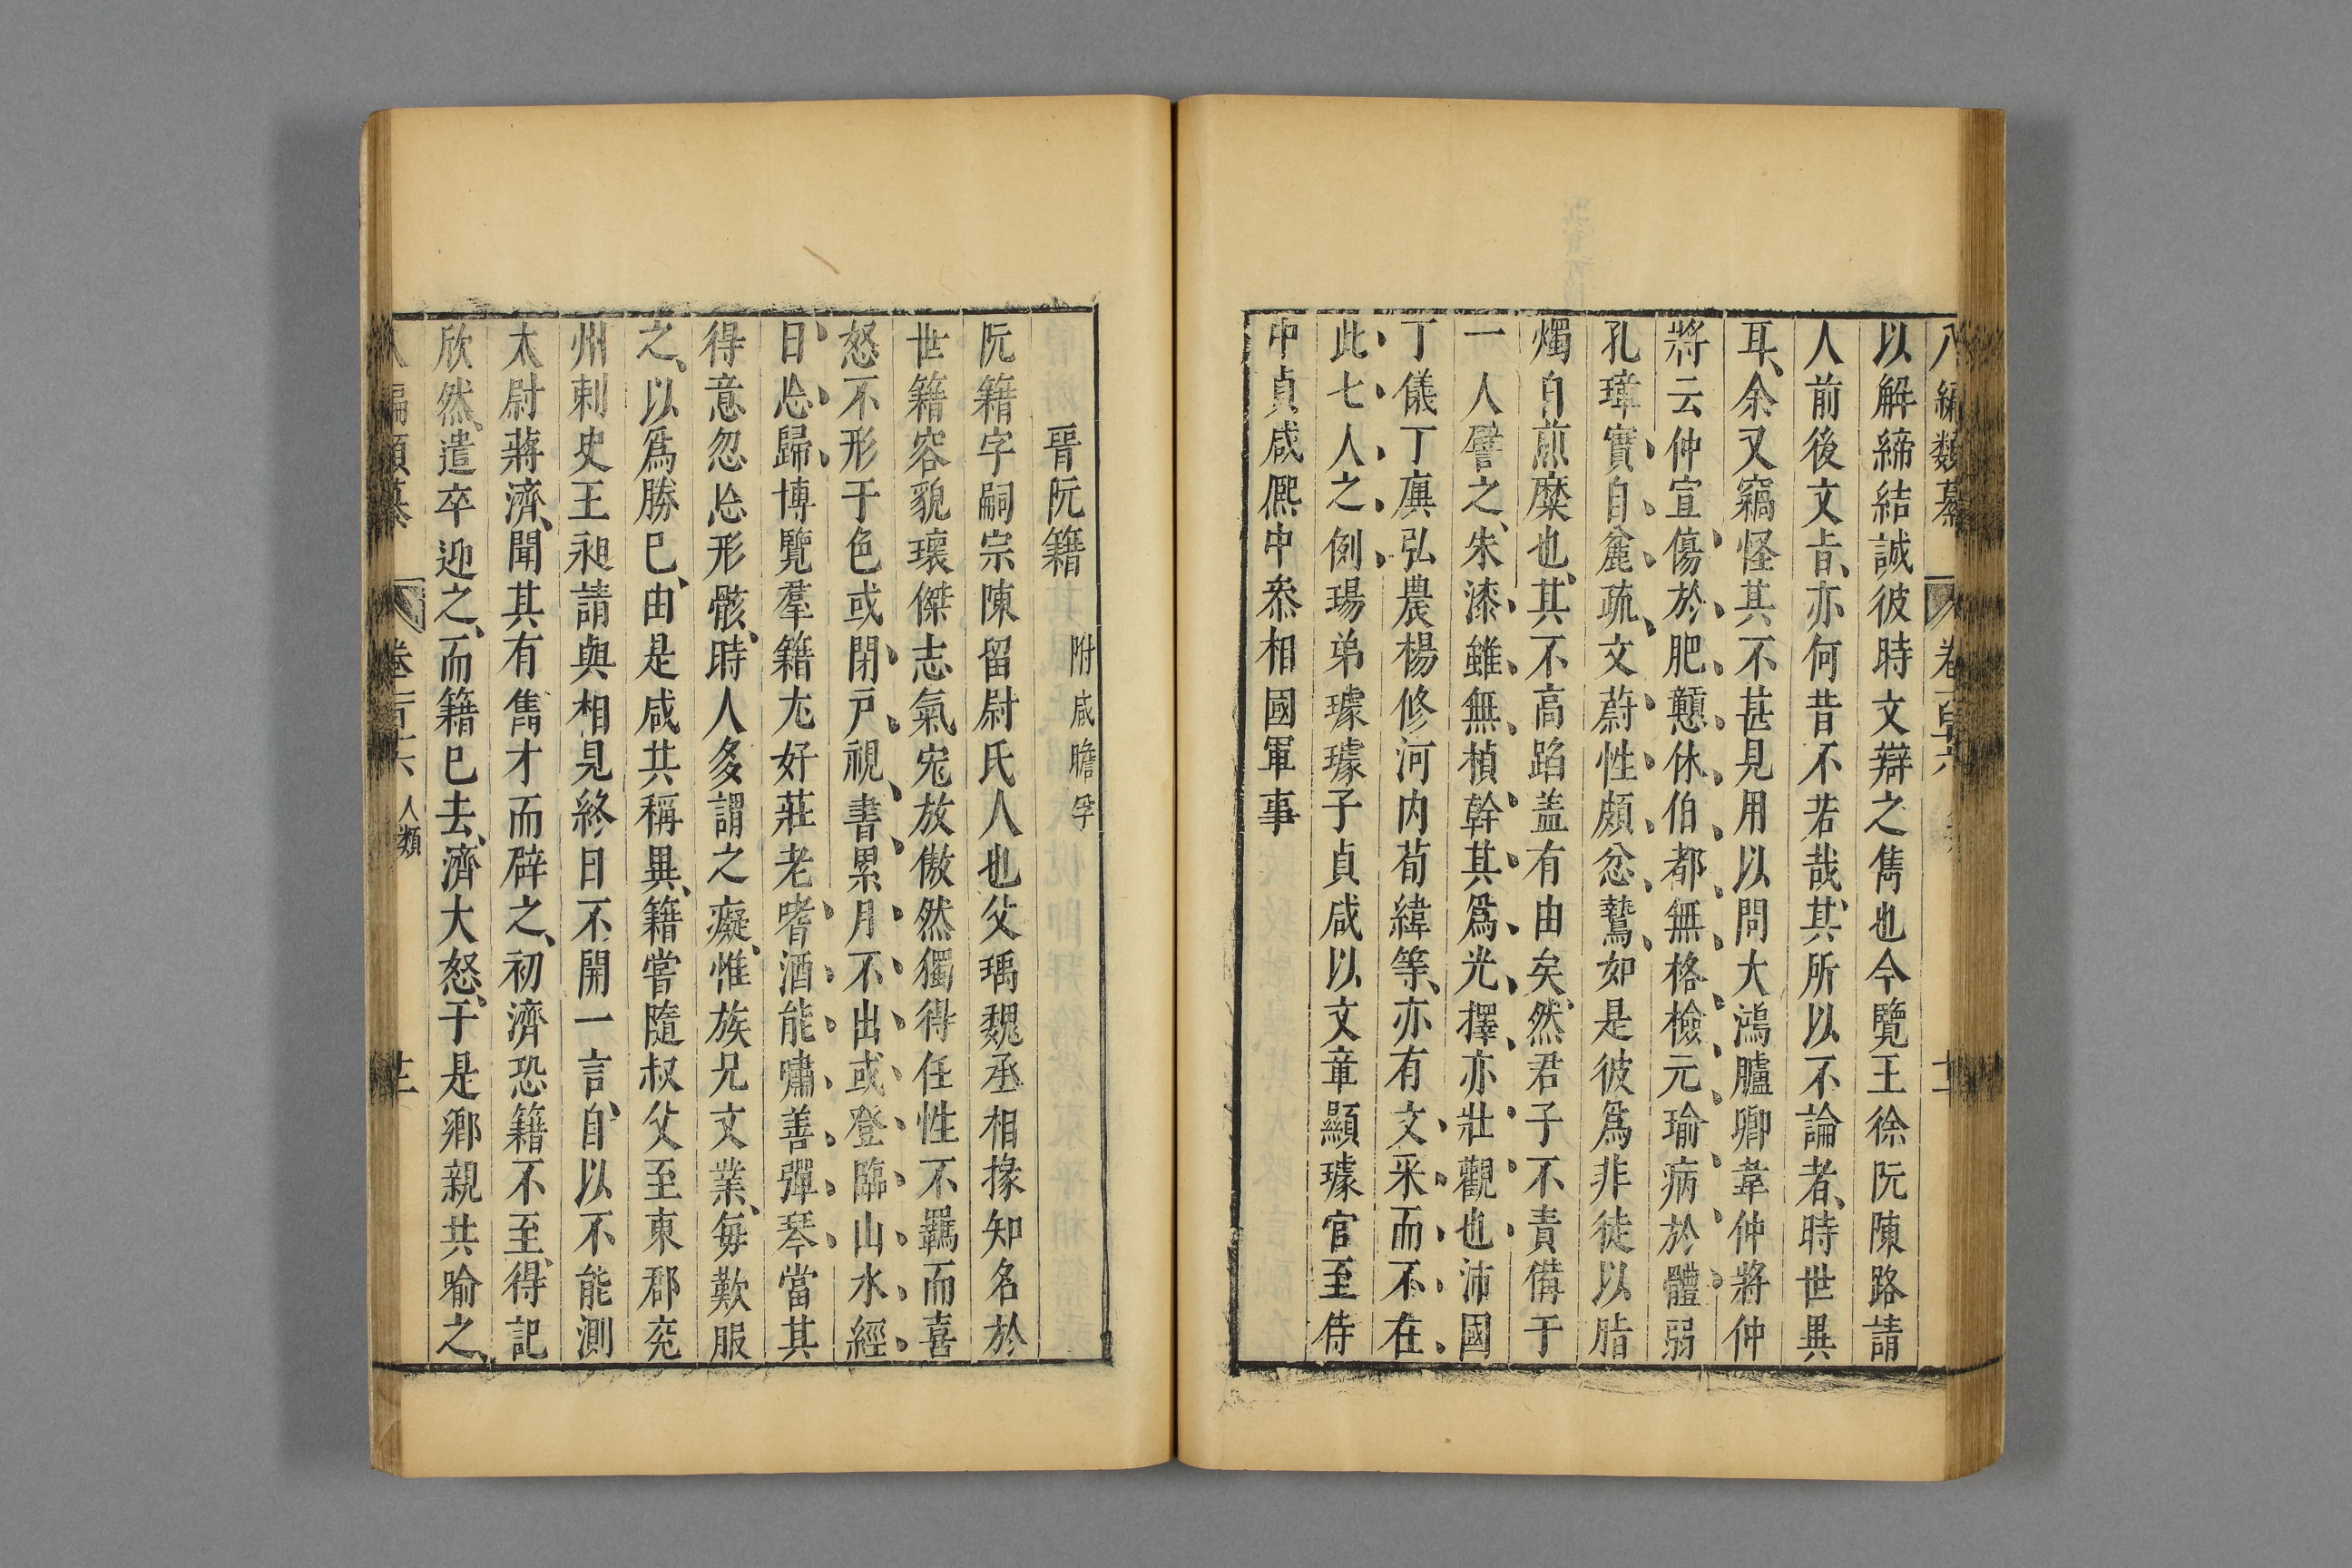 八編類纂 卷一百七十六
以解締結誠彼時文辯之雋也今覽王徐阮陳路請
人前後文㫖亦何昔不若哉其所以不論者時世異
耳余又竊怪其不甚見用以問大鴻臚卿韋仲將仲
將云仲宣傷於肥戇休伯都無格檢元瑜病於體弱
孔璋實自麄疏文蔚性頗忿鷙如是彼為非徒以脂
燭自煎糜也其不高蹈盖有由矣然君子不責備于
一人譬之朱漆雖無楨幹其為光擇亦壯觀也沛國
丁儀丁廙弘農楊修河内荀緯等亦有文采而不在
此七人之例瑒弟璩璩子貞咸以文章顯璩官至侍
中貞咸熈中叅相國軍事
晉阮籍 附咸瞻孚
阮籍字嗣宗陳留尉氏人也父瑀魏丞相掾知名於
世籍容貌瓌傑志氣宏放傲然獨得任性不羈而喜
怒不形于色或閉戸視書累月不出或登臨山水經
日忘歸博覽羣籍尤好莊老嗜酒能嘯善彈琴當其
得意忽忘形骸時人多謂之癡惟族兄文業每歎服
之以爲勝已由是咸共稱異籍嘗隨叔父至東郡兖
州刺史王昶請與相見終日不開一言自以不能測
太尉蔣濟聞其有雋才而辟之初濟恐籍不至得記
欣然遣卒迎之而籍已去濟大怒于是鄉親共喻之
編類纂 卷 人類